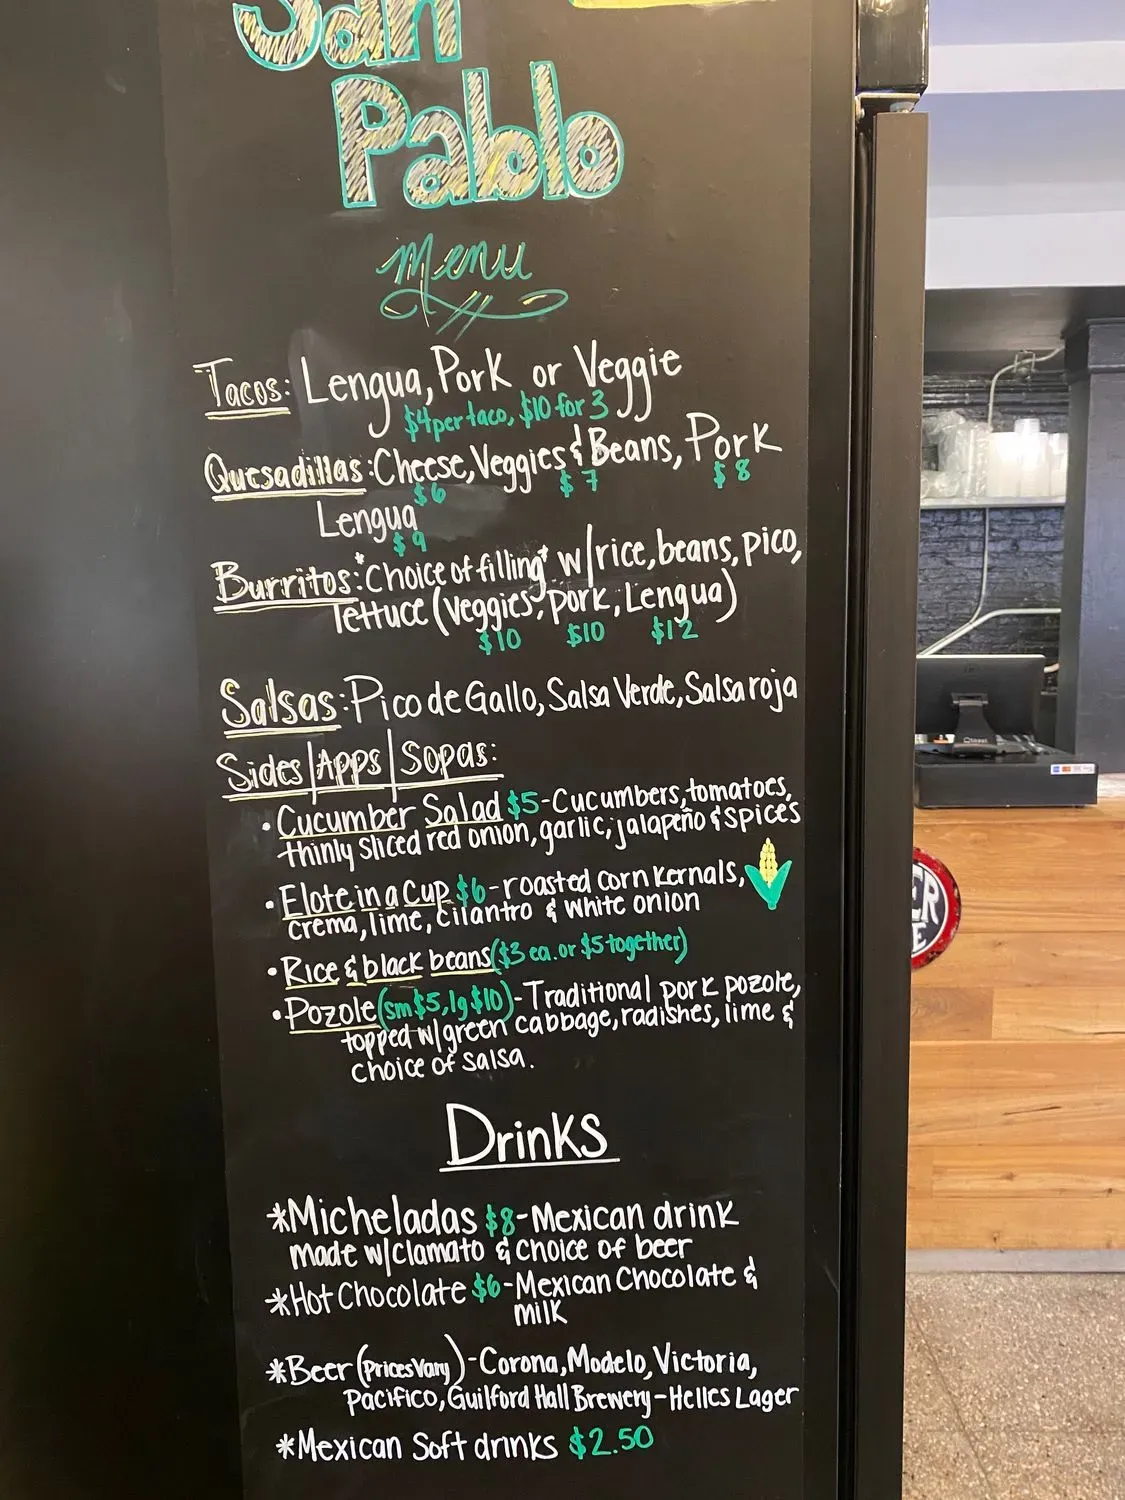 San
Pablo
Menu
Tacos: Lengua, Pork or Veggie
$4 per taco, $10 for 3
Quesadillas: Cheese, Veggies & Beans, Pork
$6 $7 $8
Lengua
$9
Burritos: *Choice of filling* w/rice, beans, pico,
lettuce (Veggies, pork, Lengua)
$10 $10 $12
Salsas: Pico de Gallo, Salsa Verde, Salsa roja
Sides|Apps|Sopas:
• Cucumber Salad $5 - Cucumbers, tomatoes,
thinly sliced red onion, garlic, jalapeño & spices
• Elote in a Cup $6 - roasted corn kernals,
crema, lime, cilantro & white onion
• Rice & black beans ($3 ea. or $5 together)
• Pozole (sm $5, lg $10) - Traditional pork pozole,
topped w/green cabbage, radishes, lime &
choice of salsa.
Drinks
*Micheladas $8 - Mexican drink
made w/clamato & choice of beer
*Hot Chocolate $6 - Mexican Chocolate &
milk
*Beer (Prices Vary) - Corona, Modelo, Victoria,
Pacifico, Guilford Hall Brewery - Helles Lager
*Mexican Soft drinks $2.50
toast